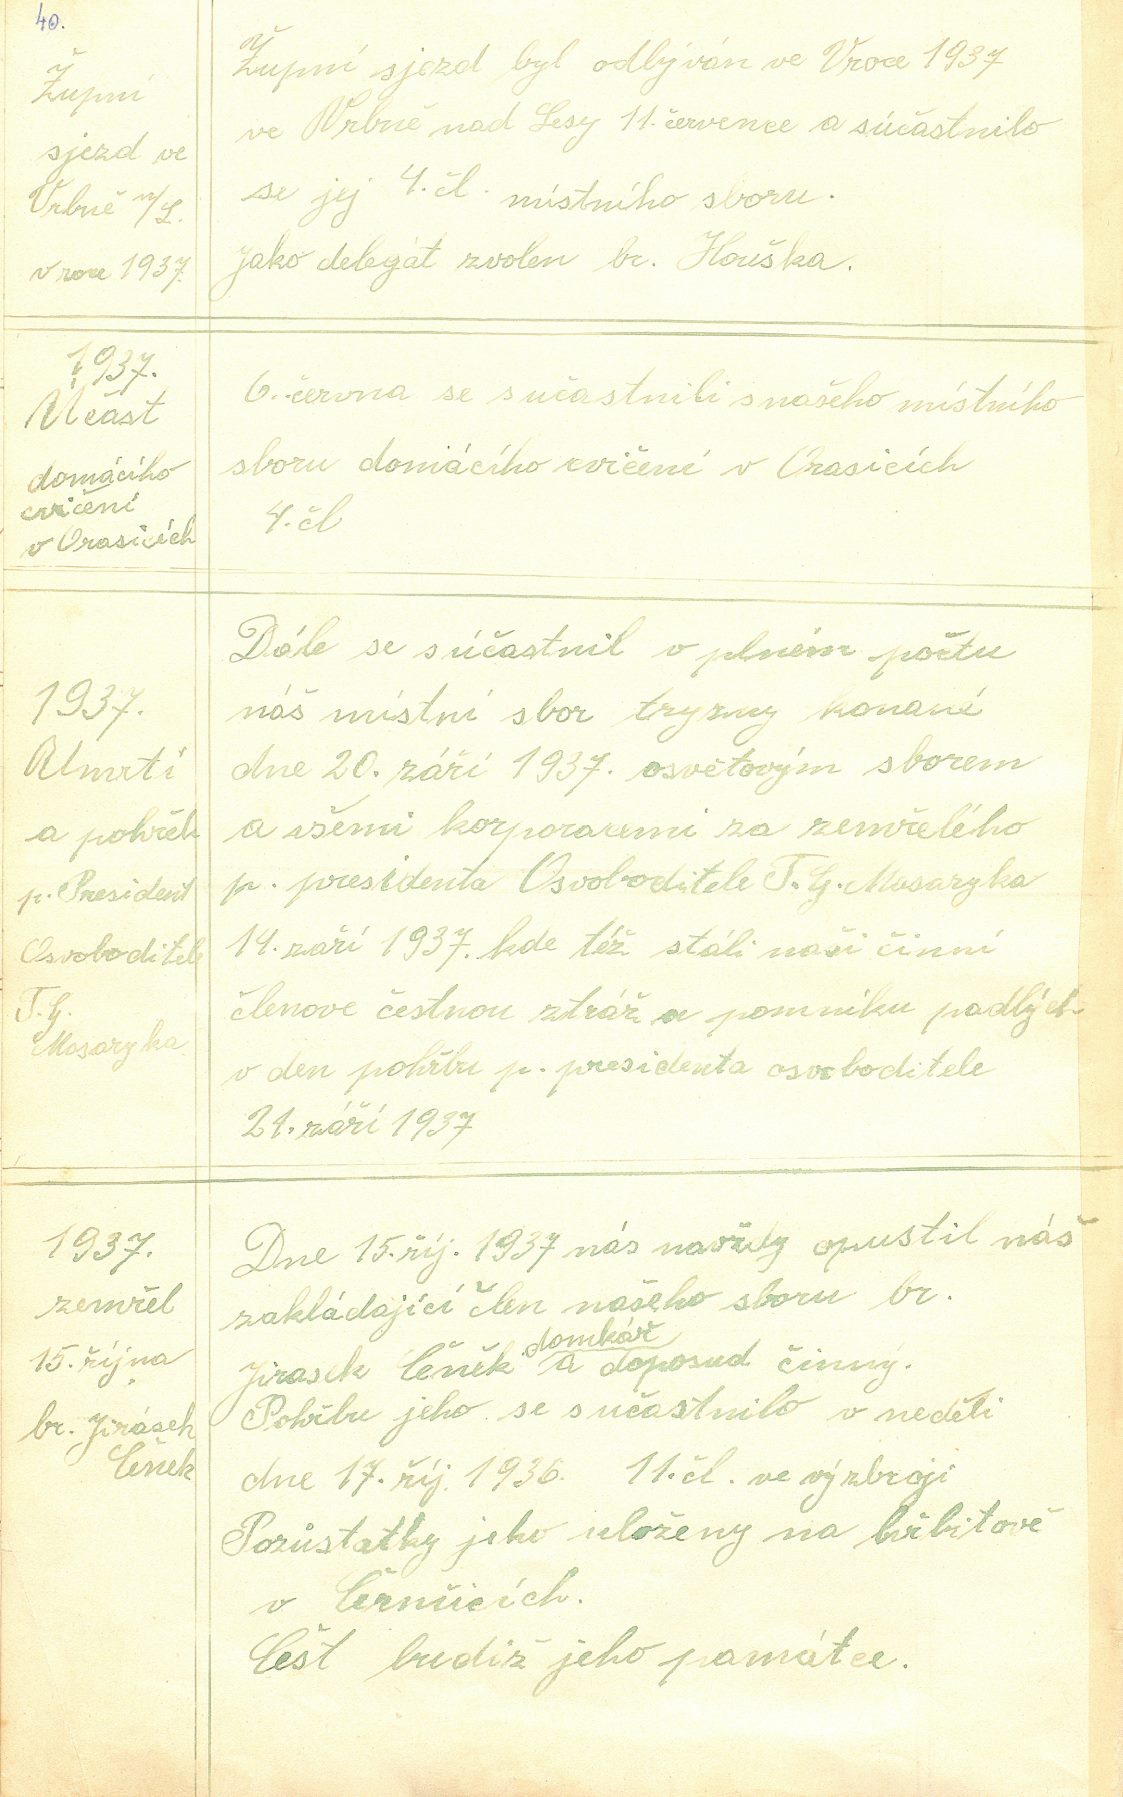 40.
Župní
sjezd ve
Vrbně n/L.
v roce 1937.
Župní sjezd byl odbýván ve Vroce 1937
ve Vrbně nad Lesy 11. července a súčastnilo
se jej 4. čl. místního sboru.
Jako delegát zvolen br. Houška.
1937.
Učast
domácího
cvičení
v Orasicích
6. června se sučastnili s našeho místního
sboru domácího cvičení v Orasicích
4. čl
1937.
Umrtí
a pohřeb
p. President
Osvoboditele
T. G.
Masaryka
Dále se súčastnil v plném počtu
náš místní sbor tryzny konané
dne 20. září 1937. osvětovým sborem
a všemi korporacemi za zemřelého
p. presidenta Osvoboditele T. G. Masaryka
14. září 1937. kde též stáli naši činní
členove čestnou stráž u pomníku padlých
v den pohřbu p. presidenta osvoboditele
21. září 1937
1937.
zemřel
15. října
br. Jirásek
Čeněk
Dne 15. říj. 1937 nás navždy opustil náš
zakládající člen našeho sboru br.
domkář
Jirasek Čeněk a doposud činný.
Pohřbu jeho se sučastnilo v neděli
dne 17. říj. 1936. 11. čl. ve výzbroji
Pozůstatky jeho uloženy na hřbitově
v Černčicích.
Čest budiž jeho památce.